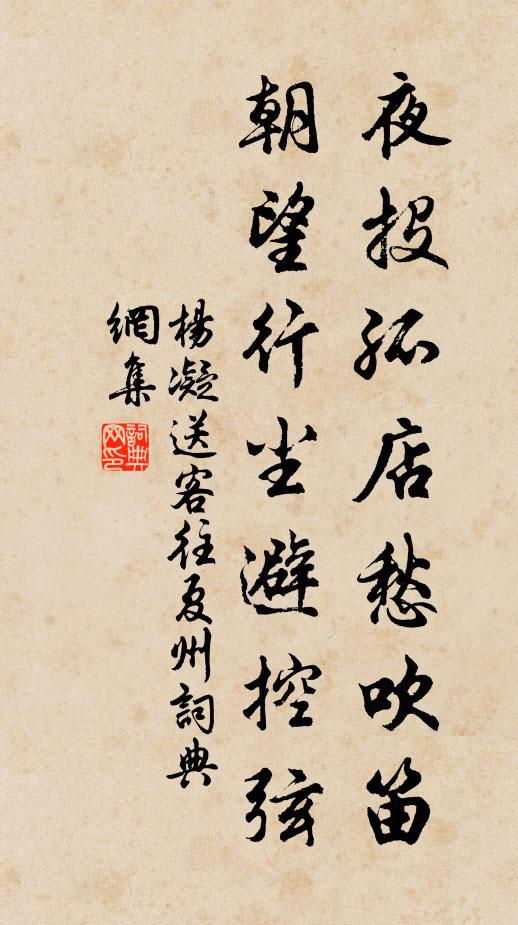 夜投孤店愁吹笛
朝望行尘避控弦
楊凝送客往夏州詞典
網集
詞典
网印